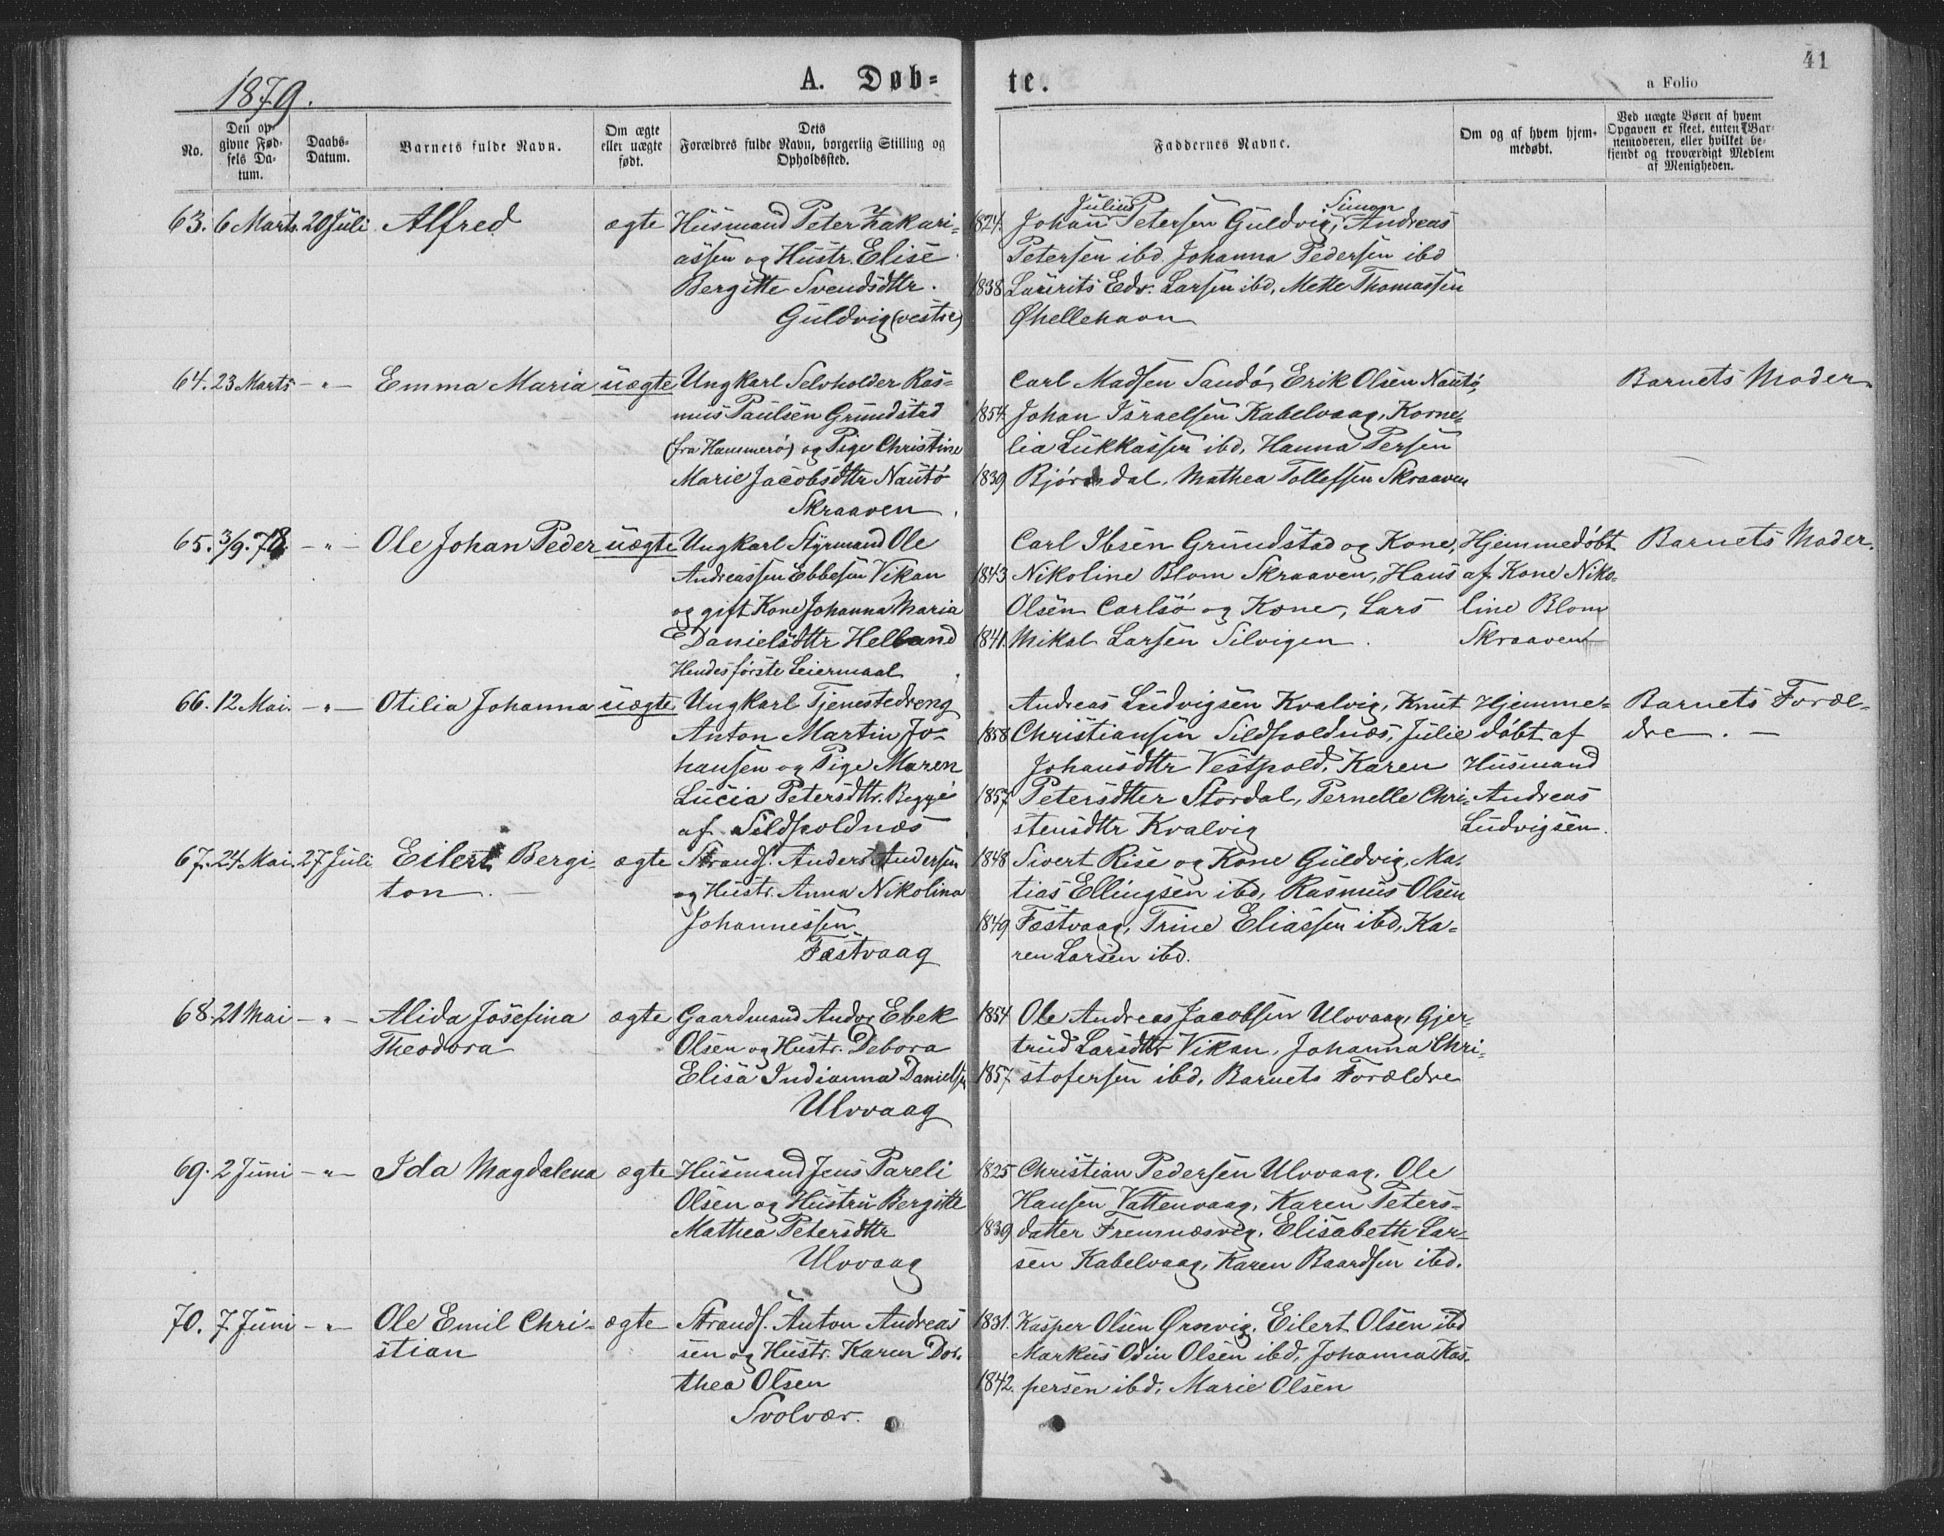 1879.
A. Døb-
te.
41
a Folio
No.
Den op-
givne Fød-
sels Da-
tum.
Daabs-
Datum.
Barnets fulde Navn.
Om ægte
eller uægte
født.
Dets
Forældres fulde Navn, borgerlig Stilling og
Opholdssted.
Faddernes Navne.
Om og af hvem hjem-
medøbt.
Ved uægte Børn af hvem
Opgaven er skeet, enten Bar-
nemoderen, eller hvilket be-
kjendt og troværdigt Medlem
af Menigheden.
63. 6 Marts 20 Juli Alfred ægte
Husmand Peter Zakari-
assen og Hustr. Elise
Bergitte Svendsdttr.
Guldvig (vestre)
1824.
1838
Julius P Simon
Johan Petersen Guldvig, Andreas
Petersen ibd. Johanna Pedersen ibd
Laurits Edv. Larsen ibd, Mette Thomassen
Øhellehavn
64. 23 Marts – " – Emma Maria uægte
Ungkarl Selvholder Ras-
mus Paulsen Grundstad
(fra Hammerø) og Pige Christine
Marie Jacobsdttr Nautø
Skraaven
1854
1839
Carl Madsen Sandø, Erik Olsen Nautø,
Johan Israelsen Kabelvaag, Korne-
lia Lukkassen ibd, Hanna Persen
Bjørndal, Mathea Tollefsen Skraaven
Barnets Moder
65. 3/9. 78. – " – Ole Johan Peder uægte
Ungkarl Styrmand Ole
Andreassen Ebbesen Vikan
og gift Kone Johanna Maria
Danielsdttr Helland
Hendes første Leiermaal
1843
1841.
Carl Ibsen Grundstad og Kone,
Nikoline Blom Skraaven, Hans
Olsen Carlsø og Kone, Lars
Mikal Larsen Silvigen.
Hjemmedøbt
af Kone Niko-
line Blom
Skraaven
Barnets Moder.
66. 12 Mai. – " – Otilia Johanna uægte
Ungkarl Tjenestedreng
Anton Martin Jo-
hansen og Pige Maren
Lucia Petersdttr. Begge
af Sildpoldnæs
1858
1857
Andreas Ludvigsen Kvalvig, Knut
Christiansen Sildpoldnæs, Julie
Johansdttr Vestpold, Karen
Petersdtter Stordal, Pernelle Chri-
stensdttr Kvalvig
Hjemme-
døbt af
Husmand
Andreas
Ludvigsen.
Barnets Foræl-
dre. –
67. 24 Mai. 27 Juli Eilert Bergi-
ton. –
ægte
Strands. Anders Andersen
og Hustr. Anna Nikolina
Johannessen
Fæstvaag
1848
1849
Sivert Rise og Kone Guldvig, Ma-
tias Ellingsen ibd, Rasmus Olsen
Fæstvaag, Trine Eliassen ibd, Ka-
ren Larsen ibd.
68. 21 Mai – " – Alida Josefina
Theodora
ægte
Gaardmand Andor Ebek
Olsen og Hustr. Debora
Elisa Indianna Danielsen
Ulvvaag
1854
1857
Ole Andreas Jacobsen Ulvvaag, Gjer-
trud Larsdttr Vikan, Johanna Chri-
stofersen ibd, Barnets Forældre
69. 2 Juni – " – Ida Magdalena ægte
Husmand Jens Pareli
Olsen og Hustru Bergitte
Mathea Petersdttr
Ulvvaag
1825
1839
Christian Pedersen Ulvvaag, Ole
Hansen Vattenvaag, Karen Peters-
datter Fremnæsvig, Elisabeth Lar-
sen Kabelvaag, Karen Baardsen ibd.
70. 7 Juni – " – Ole Emil Chri-
stian
ægte
Strands. Anton Andreas
sen og Hustr. Karen Dor-
thea Olsen
Svolvær.
1831.
1842.
Kasper Olsen Ørsvig, Eilert Olsen ibd
Markus Odin Olsen ibd, Johanna Kas-
persen ibd, Marie Olsen